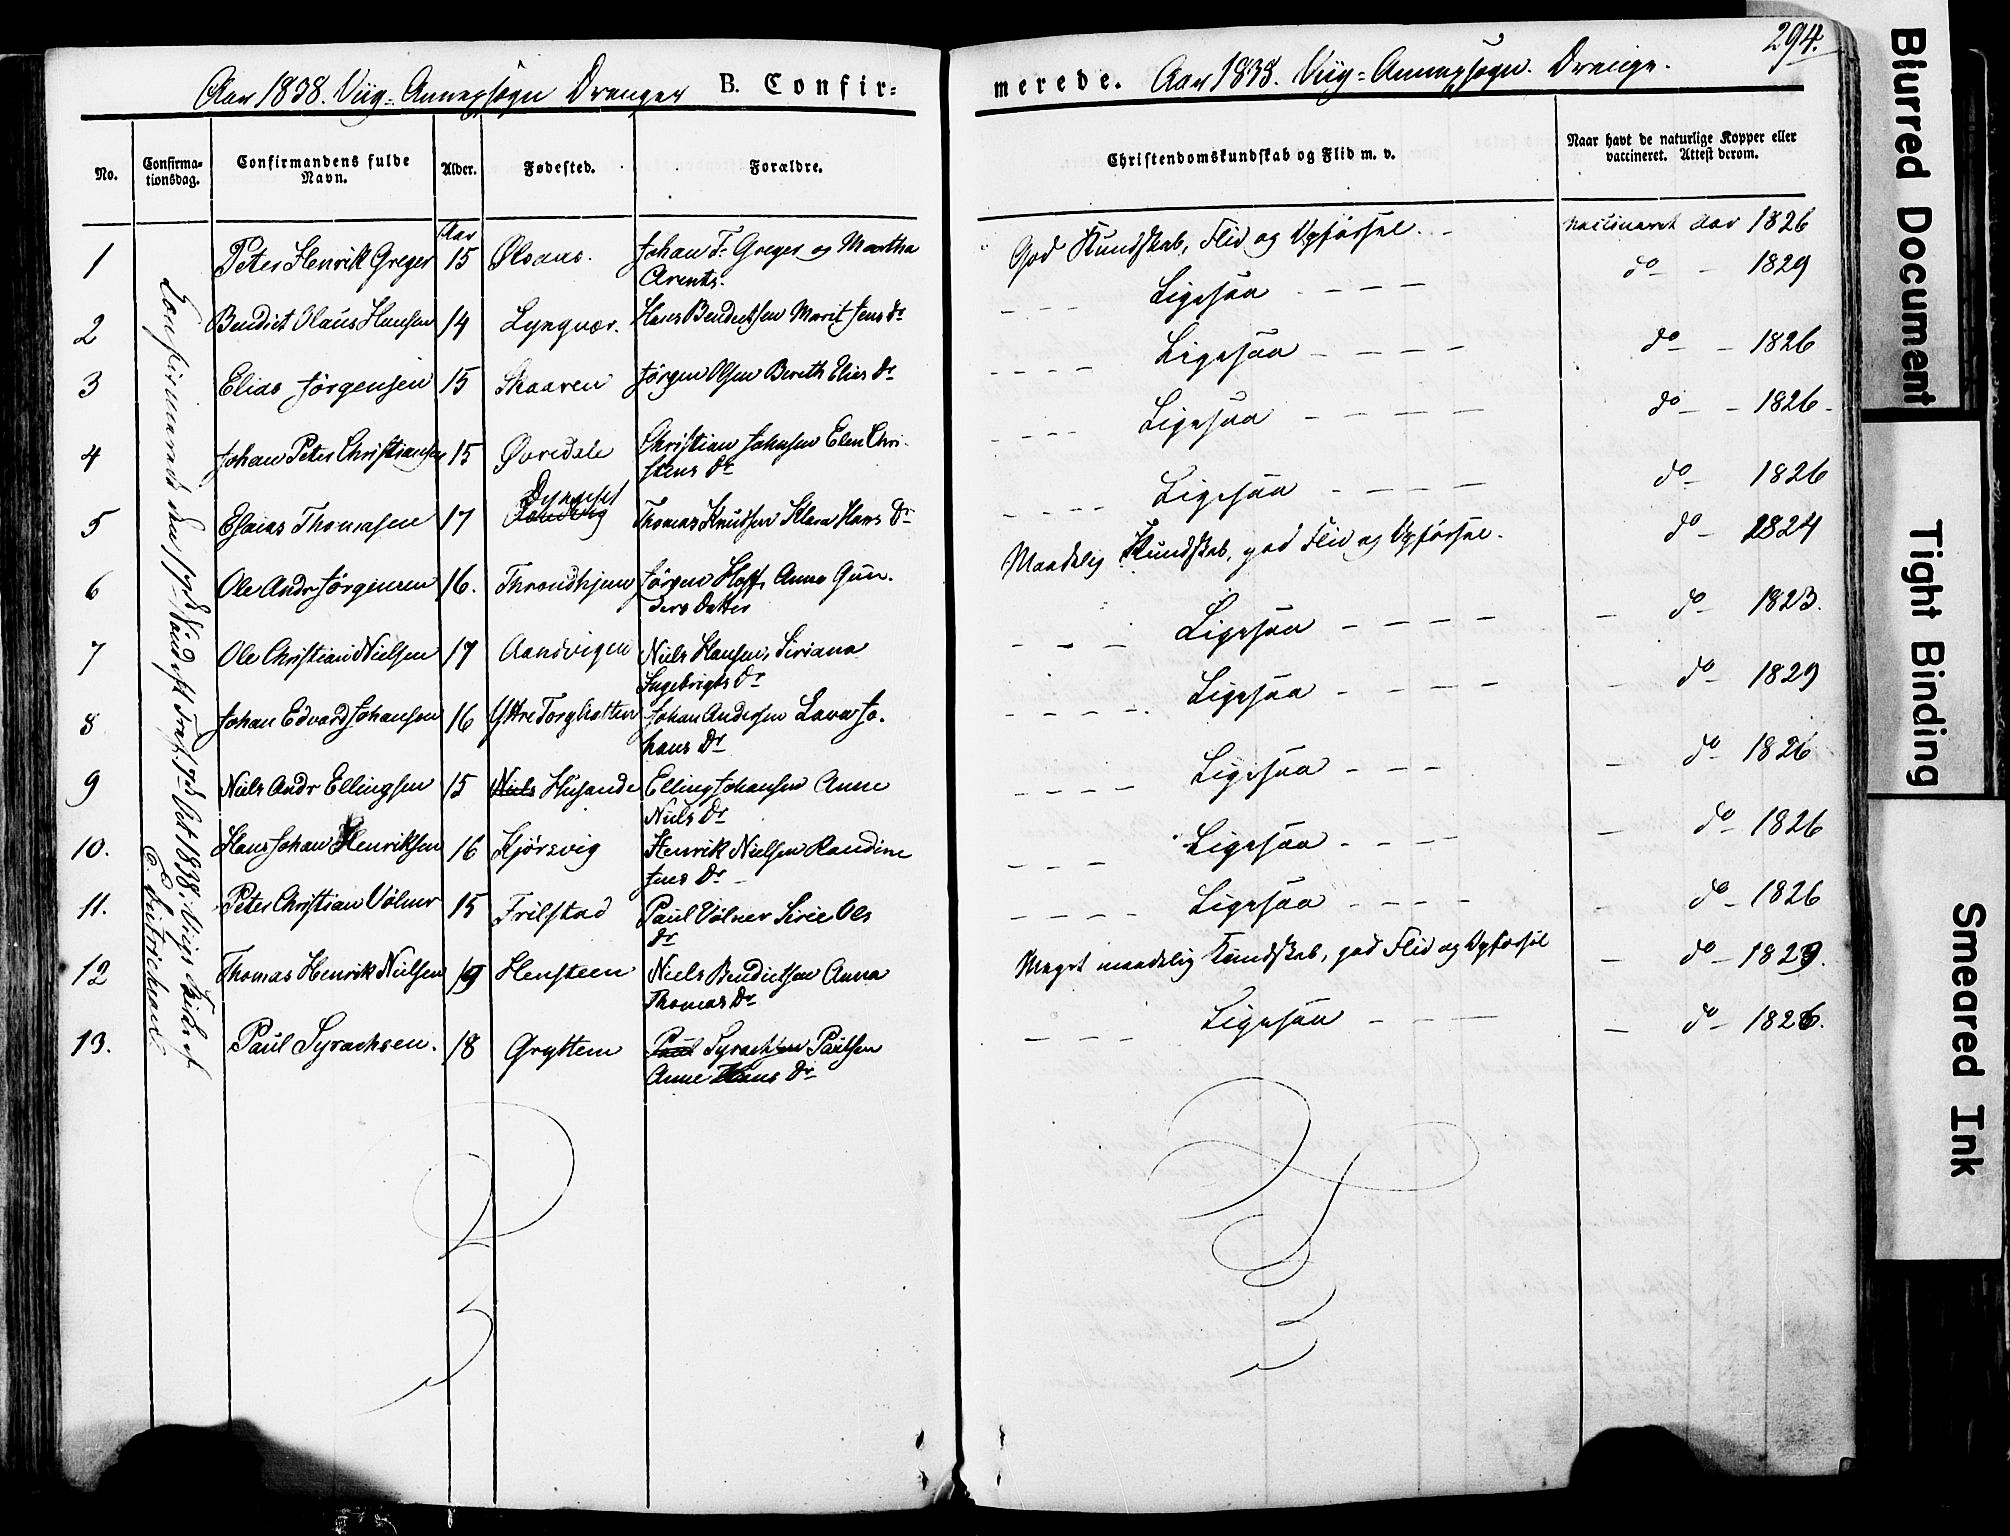 Aar 1838. Viig-Annexsogn Drenger B. Confir-
No.
Confirma-
tionsdag.
Confirmandens fulde
Navn.
Alder.
Fødested.
Forældre.
Aar
1 Peter Henrik Greger 15 Johan F. Greger og Martha
Arents.
2 Bendict Olaus Hansen 14 Lyngvær. Hans Bendictsen Marit Jens Dr
3 Elias Jørgensen 15 Skaaren Jørgen Olsen Bereth Elias Dr
4 Johan Peter Christiansen 15 Øvredale Christian Johnsen Elen Chri-
stens Dr
5 Esaias Thomasen 17 Thomas Knudsen Klara Hans Dr
6 Ole Andr Jørgensen 16. Throndhjem Jørgen Hoff, Anne Gun-
ders Datter
7 Ole Christian Nielsen 17 Aandvigen Niels Hansen, Siriana
Ingebrigts Dr
8 Johan Edvard Johansen 16 Yttre Torghatten Johan Andersen Lava Jo-
hans Dr
9 Niels Andr Ellingsen 15 Niels Husande Elling Johansen Anne
Niels Dr
10. Hans Johan Henriksen 16 Kjørsvig Henrik Nielsen Randine
Jens Dr
11. Peter Christian Vølner 15 Trélstad Paul Vølner Sirie Ols
Dr
12 Thomas Henrik Nielsen 19 Hensteen Niels Bendictsen Anna
Thomas Dr
13. Paul Syrachsen. 18 Gryttem Paul Syrachsen Paulsen
Anne Hans Dr
294.
merede. Aar 1838. Viig-Annexsogn. Drenge.
Christendomskundskab og Flid m. v.
Naar havt de naturlige Kopper eller
vaccineret. Attest derom.
God Kundskab, Flid og Opførsel. - vaccineret Aar 1826
- - - Ligesaa - - - - do - 1829
- - - - Ligesaa - - - - do - 1826
- - - - Ligesaa - - - - do - 1826
- - - - Ligesaa - - - - do - 1826
Maadelig Kundskab, god Flid og Opførsel. do - 1824
- - - Ligesaa - - - - - do - 1823.
- - - - Ligesaa - - - - - do - 1829
- - - - Ligesaa - - - - do - 1826
- - - Ligesaa - - - - - do - 1826
- - - - Ligesaa - - - - - do - 1826
Meget maadelig Kundskab, god Flid og Opførsel - do - 1829.
- - - Ligesaa - - - - do - 1826.
Blurred Document
Tight Binding
Smeared Ink